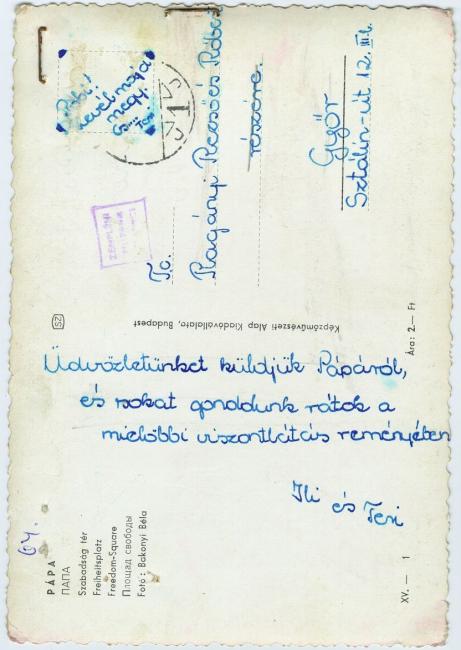 Üdvözletünket küldjük Pápáról,
és sokat gondolunk rátok a
mielőbbi viszontlátás reményében
Ili és Feri
Ic.
Ragányi Rezsőés Róbert
részére.
Győr
Sztálin-út 12. III.
levél
megy
64.
PÁPA
ПАПА
Szabadság tér
Freiheitsplatz
Freedom-Square
Площадь свободы
Fotó: Bakonyi Béla
SZ
Képzőművészeti Alap Kiadóvállalata, Budapest
Ára: 2.— Ft
XV. — 1